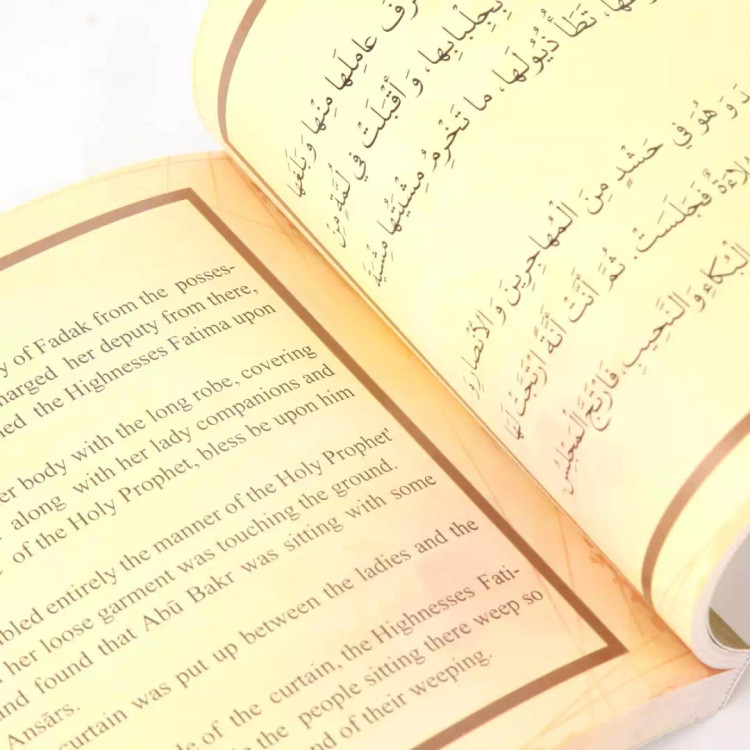 y of Fadak from the posses-
her deputy from there,
the Highnesses Fatima upon
er body with the long robe, covering
along with her lady companions and
of the Holy Prophet, bless be upon him
bled entirely the manner of the Holy Prophet'
her loose garment was touching the ground.
and found that Abū Bakr was sitting with some
Ansārs.
curtain was put up between the ladies and the
of the curtain, the Highnesses Fati-
the people sitting there weep so
of their weeping.
عامِلَها مِنْها وَ بَلَغَها
بِجِلْبابِها، وَ أَقْبَلَتْ في لُمَّةٍ مِنْ
تَطَأُ ذُيُولَها، ما تَخْرِمُ مِشْيَتُها مِشْيَةَ
وَ هُوَ في حَشْدٍ مِنَ الْمُهاجِرينَ وَ الْأَنْصارِ وَ
فَجَلَسَتْ. ثُمَّ أَنَّتْ أَنَّةً أَرْتَجَّتْ لَهَا
الْبُكاءِ وَ النَّحيبِ، فَارْتَجَّ الْمَجْلِسُ